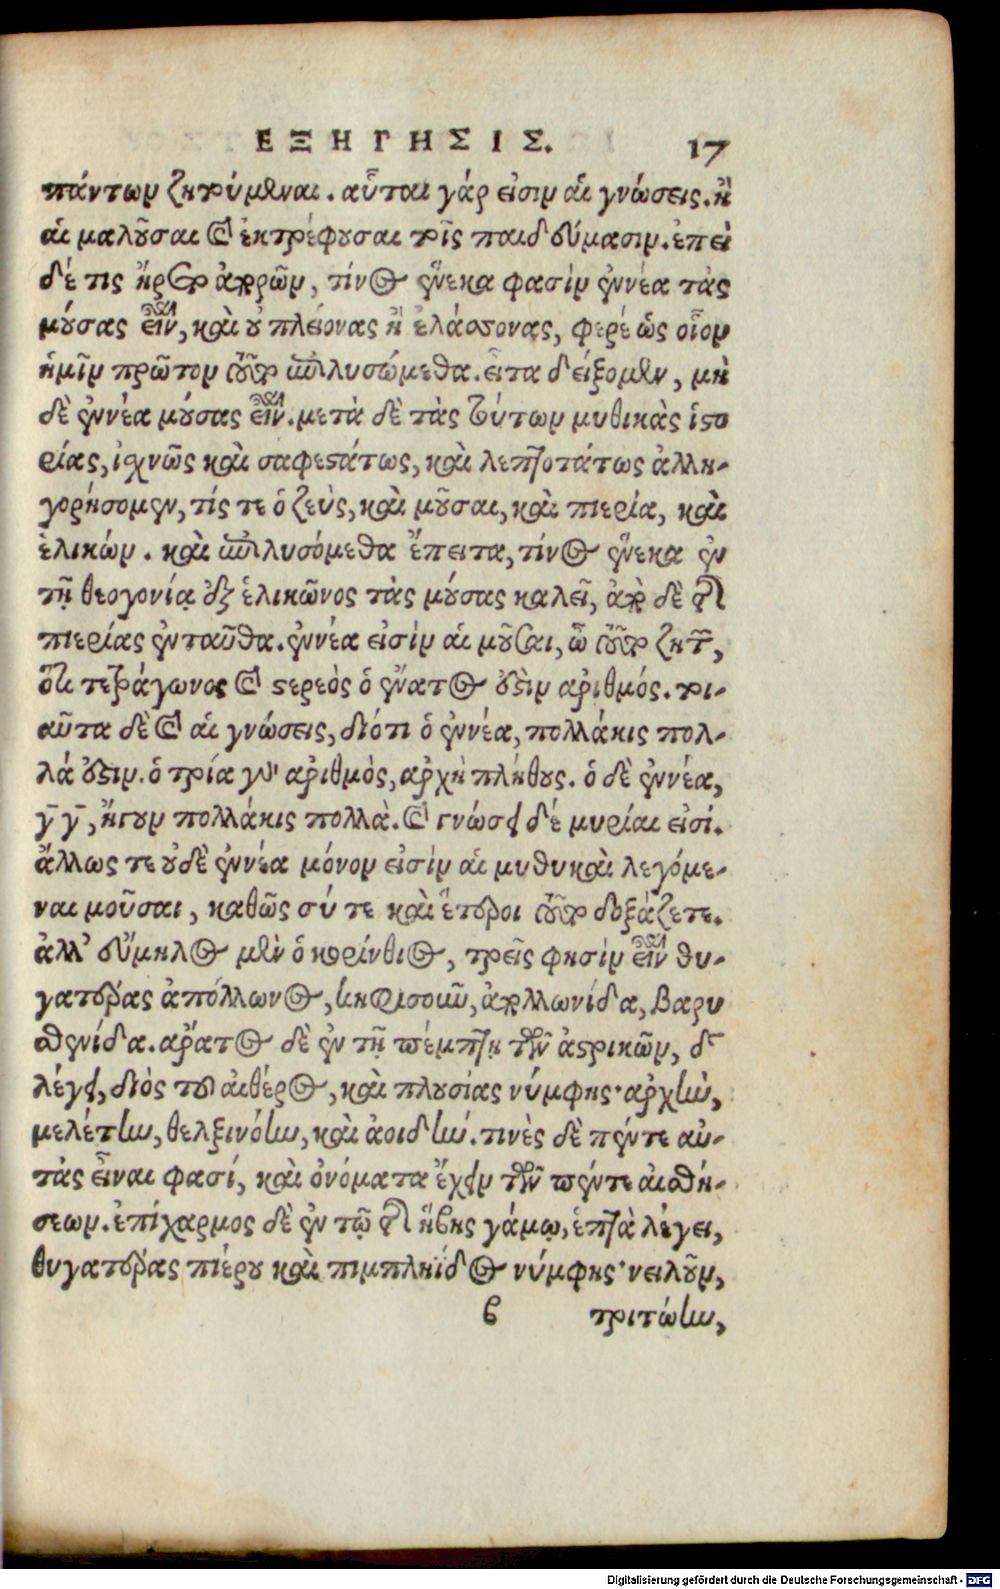 ΕΞΗΓΗΣΙΣ. 17
πάντων ζητούμεναι. αὗται γάρ εἰσιν αἱ γνώσεις. ἢ
αἱ μαλοῦσαι καὶ ἐκτρέφουσαι τοῖς παιδεύμασιν. ἐπεὶ
δέ τις ἤρετο ἀπορῶν, τίνος ἕνεκα φασὶν ἐννέα τὰς
μούσας εἶναι, καὶ οὐ πλείονας ἢ ἐλάσσονας, φερέ ὡς οἷον
ἡμῖν πρῶτον τοῦτο ἐπιλυσώμεθα. εἶτα δείξομεν, μὴ
δὲ ἐννέα μούσας εἶναι. μετὰ δὲ τὰς τούτων μυθικὰς ἱστο
ρίας, ἰσχνῶς καὶ σαφεστάτως, καὶ λεπτοτάτως ἀλλη-
γορήσομεν, τίς τε ὁ ζεὺς, καὶ μοῦσαι, καὶ πιερία, καὶ
ἑλικών. καὶ ἐπιλυσόμεθα ἔπειτα, τίνος ἕνεκα ἐν
τῇ θεογονίᾳ ἐξ ἑλικῶνος τὰς μούσας καλεῖ, ἀπὸ δὲ τῆς
πιερίας ἐνταῦθα. ἐννέα εἰσὶν αἱ μοῦσαι, ὦ οὗτος ζητῶν,
ὅτι τετράγωνος καὶ στερεὸς ὁ ἔνατος ἐστὶν ἀριθμός. τοι-
αῦται δὲ καὶ αἱ γνώσεις, διότι ὁ ἐννέα, πολλάκις πολ-
λά ἐστιν. ὁ τρία γὰρ ἀριθμὸς, ἀρχὴ πλήθους. ὁ δὲ ἐννέα,
γ̄ γ̄, ἤγουν πολλάκις πολλὰ. καὶ γνώσεις δέ μυρίαι εἰσί.
ἄλλως τε οὐδὲ ἐννέα μόνον εἰσὶν αἱ μυθικαὶ λεγόμε-
ναι μοῦσαι, καθῶς σύ τε καὶ ἕτεροι τοῦτο δοξάζετε.
ἀλλ' εὔμηλος μὲν ὁ κορίνθιος, τρεῖς φησὶν εἶναι θυ-
γατέρας ἀπόλλωνος, κηφισοῦν, ἀπολλωνίδα, βαρυ
σθενίδα. ἄρατος δὲ ἐν τῇ πέμπτῃ τῶν ἀστρικῶν, δ̄
λέγει, διὸς τοῦ αἰθέρος, καὶ πλουσίας νύμφης· ἀρχὴν,
μελέτην, θελξινόην, καὶ ἀοιδήν. τινὲς δὲ πέντε αὐ-
τὰς εἶναι φασί, καὶ ὀνόματα ἔχειν τῶν πέντε αἰσθή-
σεων. ἐπίχαρμος δὲ ἐν τῷ τῆς ἥβης γάμῳ, ἑπτὰ λέγει,
θυγατέρας πιέρου καὶ πιμπληΐδος νύμφης· νειλοῦν,
β τριτώνην,
Digitalisierung gefördert durch die Deutsche Forschungsgemeinschaft - DFG